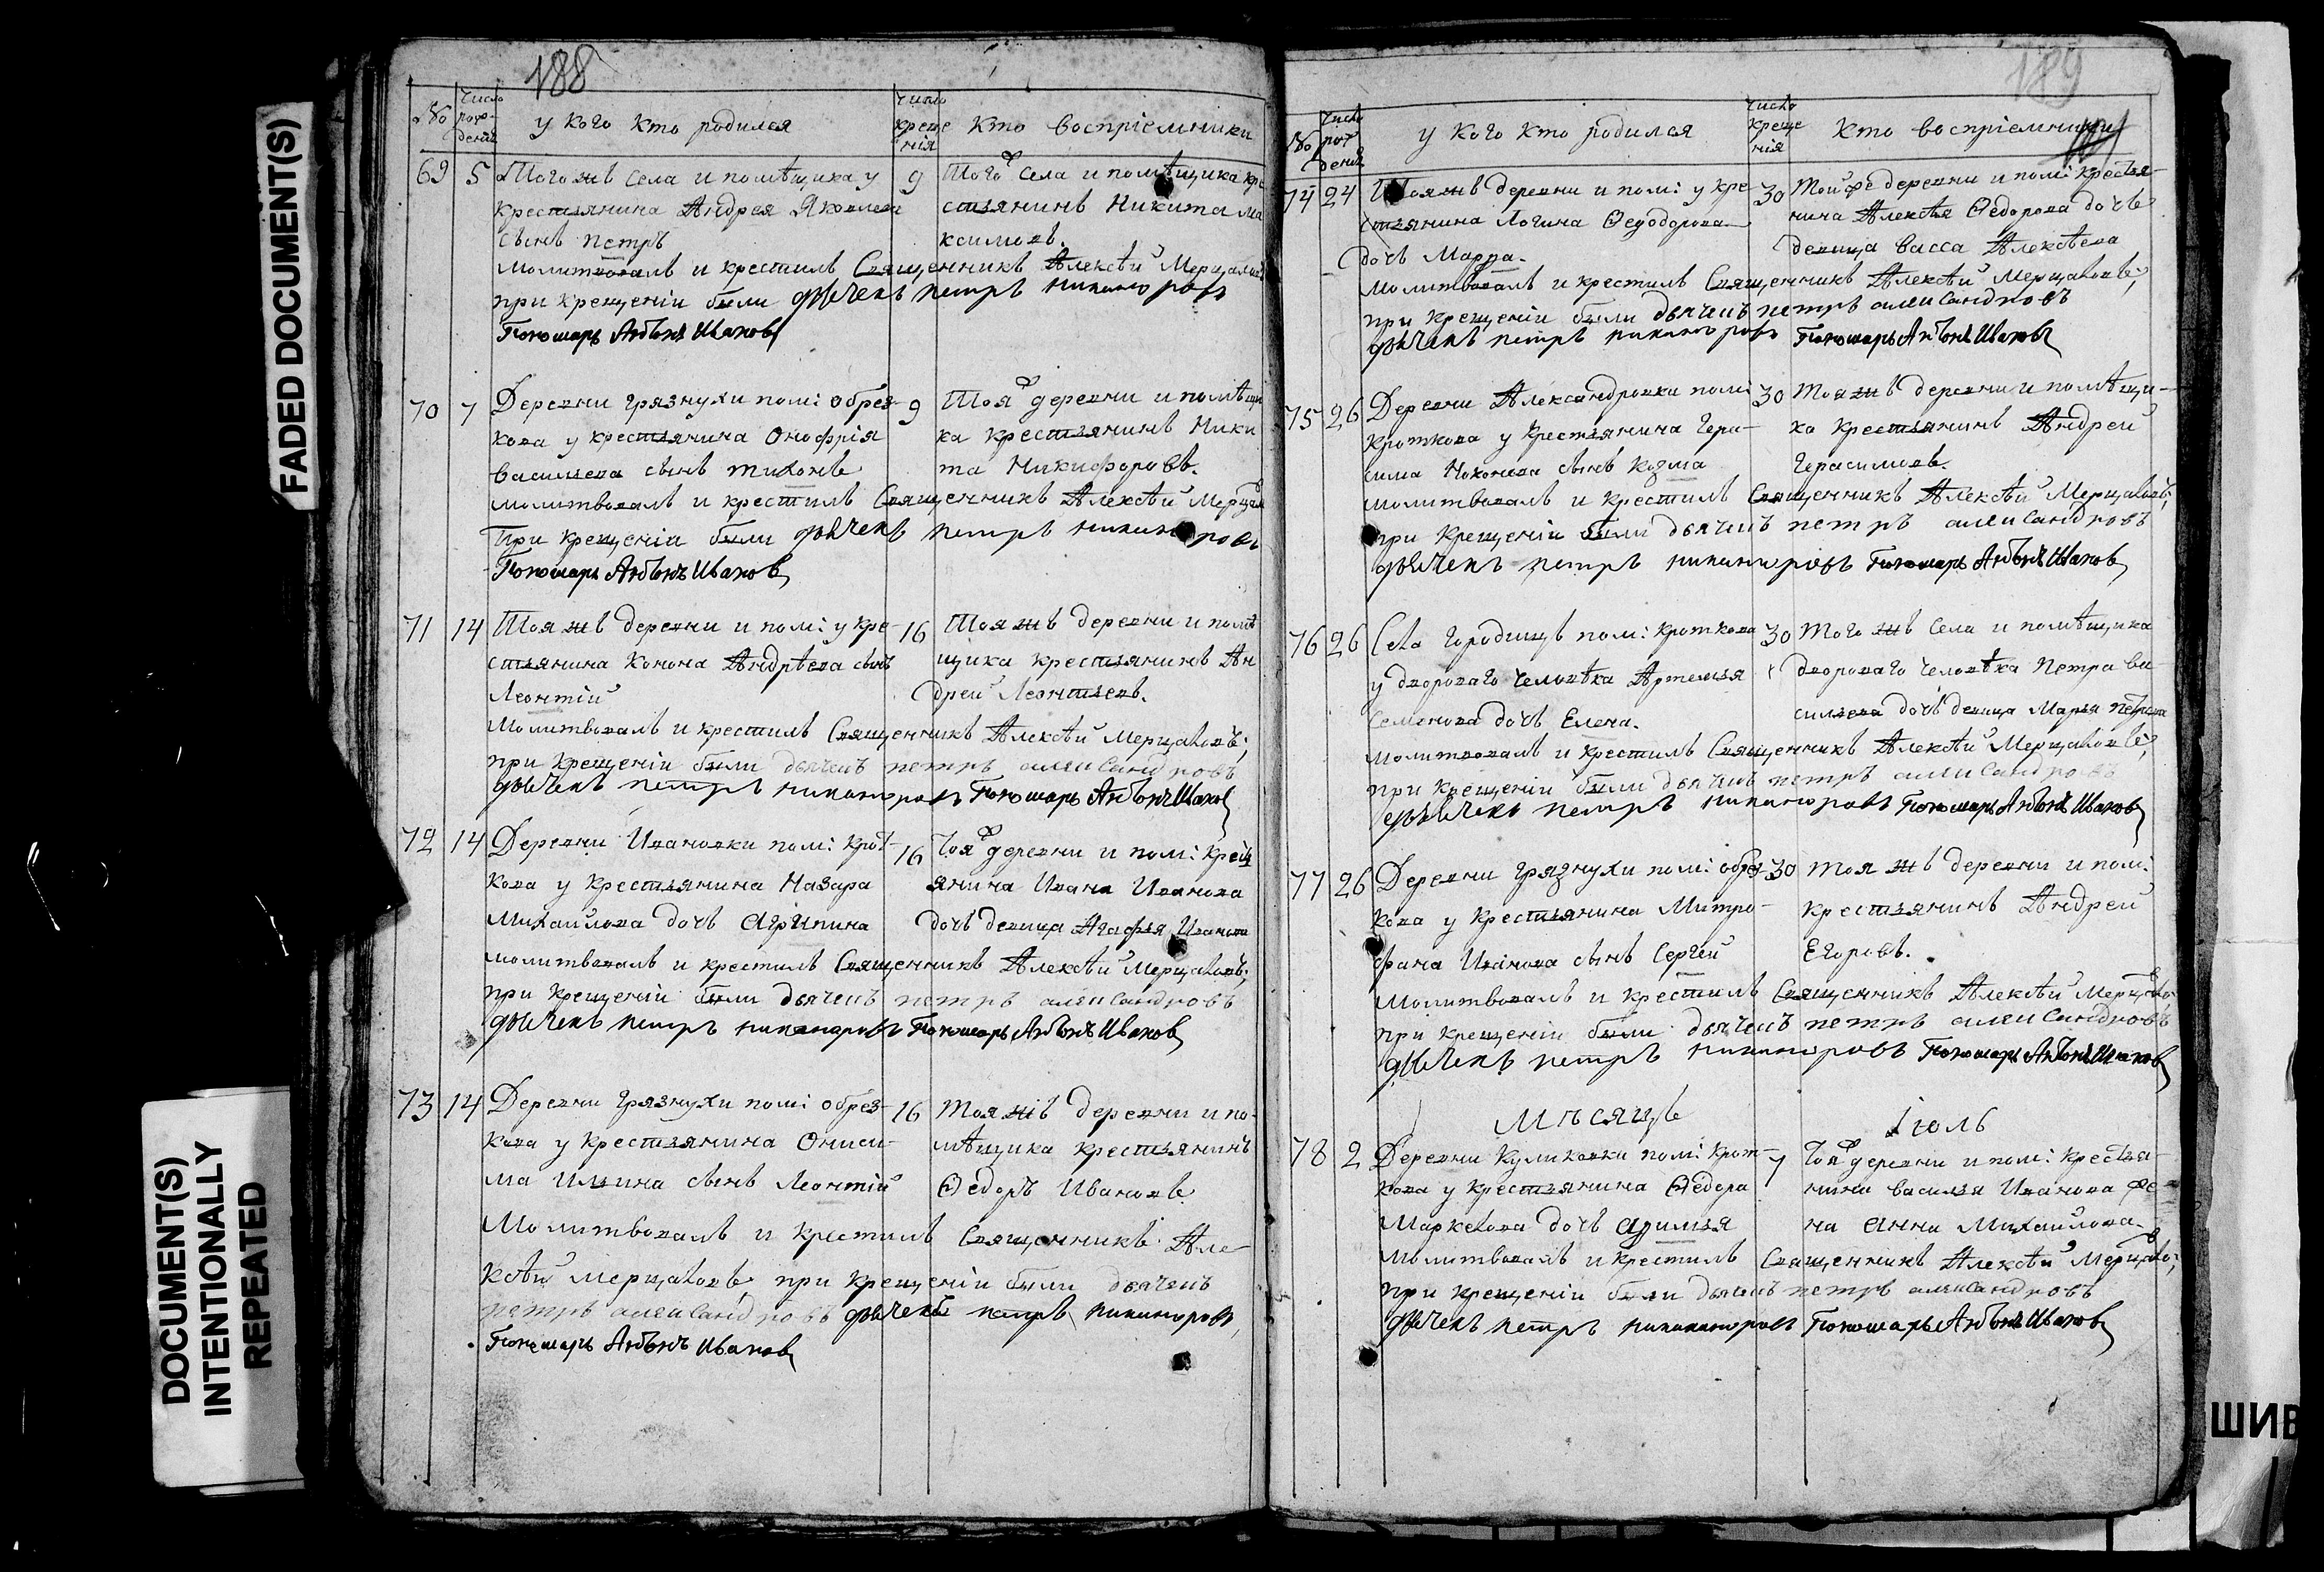 FADED DOCUMENT(S)
DOCUMENT(S)
INTENTIONALLY
REPEATED
188
№
Число рожденiя
у кого кто родился
число крещенiя
кто воспрiемники
69 5 Того жъ села и помѣщика у
крестьянина Андрея Яковлева
сынъ Петръ
9 Того ж села и помѣщика кре
стьянинъ Никита Ма
ксимовъ.
молитвовалъ и крестилъ Священникъ Алексѣй Мерцаловъ
при крещенiи были дьячекъ петръ никаноровъ
Пономарь Антонъ Ивановъ
70 7 Деревни Грязнухи пом: Обрез-
кова у крестьянина Онофрiя
Васильева сынъ Тихонъ
9 Тоя ж деревни и помѣщи
ка крестьянинъ Ники
та Никифоровъ.
молитвовалъ и крестилъ Священникъ Алексѣй Мерцал
При крещенiи были дьячекъ петръ никаноровъ
Пономарь Антонъ Ивановъ
71 14 Тоя жъ деревни и пом: у кре-
стьянина Конона Андрѣева сынъ
Леонтiй
16 Тоя жъ деревни и помѣ
щика крестьянинъ Ан
дрей Леонтьевъ.
Молитвовалъ и крестилъ Священникъ Алексѣй Мерцаловъ;
при крещенiи были дьячекъ петръ александровъ
дьячекъ петръ никаноровъ Пономарь Антонъ Ивановъ
72 14 Деревни Ивановки пом: Крот-
кова у крестьянина Назара
Михайлова дочь Агрипина
16 Тоя ж деревни и пом: крест
янина Ивана Иванова
дочь девица Агафья Иванова
молитвовалъ и крестилъ Священникъ Алексѣй Мерцаловъ;
при крещенiи были дьячекъ петръ александровъ
дьячекъ петръ никаноровъ Пономарь Антонъ Ивановъ
73 14 Деревни Грязнухи пом: Обрез-
кова у крестьянина Ониси-
ма Ильина сынъ Леонтiй
16 Тоя жъ деревни и по-
мѣщика крестьянинъ
Ѳедоръ Ивановъ
Молитвовалъ и крестилъ Священникъ Але-
ксѣй Мерцаловъ, при крещенiи были дьячекъ
петръ александровъ дьячекъ петръ никаноровъ
Пономарь Антонъ Ивановъ
189
№
Число рожденiя
у кого кто родился
число крещенiя
кто воспрiемники
74 24 Тоя жъ деревни и пом: у кре-
стьянина Логина Ѳедодорова
дочь Марѳа.
30 Той же деревни и пом: крестья-
нина Алексѣя Ѳедорова дочь
девица Васса Алексѣева
молитвовалъ и крестилъ Священникъ Алексѣй Мерцаловъ;
при крещенiи были дьячекъ петръ александровъ
дьячекъ петръ никаноровъ Пономарь Антонъ Ивановъ
75 26 Деревни Александровки пом:
Кроткова у крестьянина Гера-
сима Никонова сынъ Козма
30 Тоя жъ деревни и помѣщи-
ка крестьянинъ Андрей
Герасимовъ.
молитвовалъ и крестилъ Священникъ Алексѣй Мерцаловъ;
при крещенiи были дьячекъ петръ александровъ
дьячекъ петръ никаноровъ Пономарь Антонъ Ивановъ
76 26 Села Городищъ пом: Кроткова
у двороваго человѣка Артемья
Семенова дочь Елена.
30 Того жъ села и помѣщика
двороваго человѣка Петра Ва
сильева дочь девица Марья Петрова
молитвовалъ и крестилъ Священникъ Алексѣй Мерцаловъ;
при крещенiи были дьячекъ петръ александровъ
дьячекъ петръ никаноровъ Пономарь Антонъ Ивановъ
77 26 Деревни Грязнухи пом: Обрез-
кова у крестьянина Митро-
фана Иванова сынъ Сергей
30 Тоя жъ деревни и пом:
крестьянинъ Андрей
Егоровъ.
Молитвовалъ и крестилъ Священникъ Алексѣй Мерцало
при крещенiи были дьячекъ петръ александровъ
дьячекъ петръ никаноровъ Пономарь Антонъ Ивановъ
Мѣсяцъ Iюль
78 2 Деревни Куликовки пом: Крот-
кова у крестьянина Ѳедора
Маркелова дочь
7 Тоя ж деревни и пом: крестья-
нина Василья Иванова же-
на Анна Михайлова.
Молитвовалъ и крестилъ Священникъ Алексѣй Мерцалов;
при крещенiи были дьячекъ петръ александровъ
дьячекъ петръ никаноровъ Пономарь Антонъ Ивановъ
ШИВ